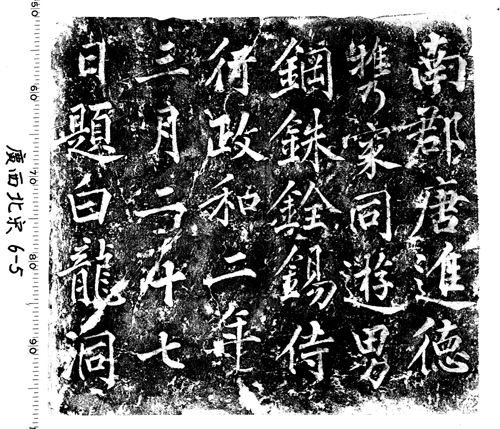 南郡唐進德
携家同遊男
鋼銖銓錫侍
行政和二年
三月二十七
日題白龍洞
廣西北宋 6-5
50
60
70
80
90